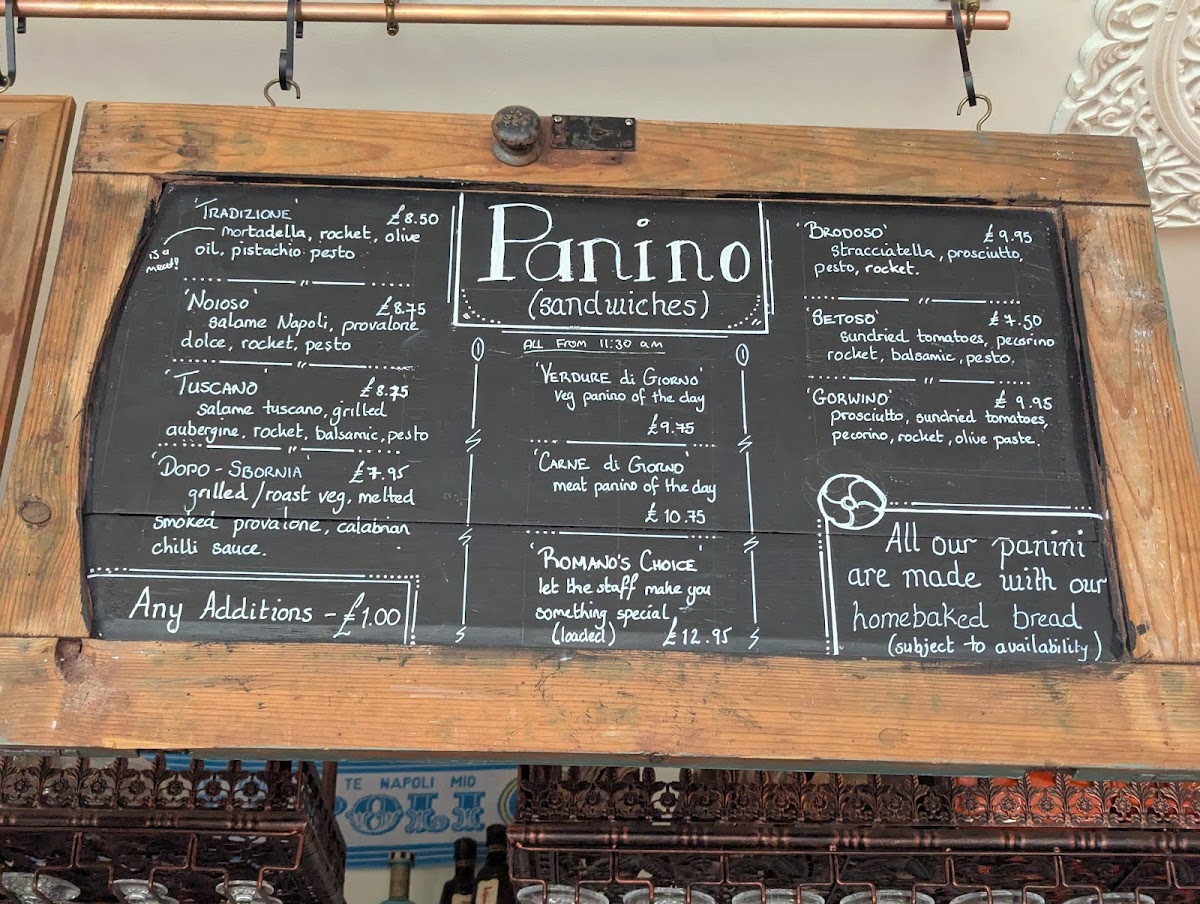 'TRADIZIONE' £8.50
mortadella, rocket, olive
oil, pistachio pesto
is a
meat!
'NOIOSO' £8.75
salame Napoli, provalone
dolce, rocket, pesto
'TUSCANO' £8.75
salame tuscano, grilled
aubergine, rocket, balsamic, pesto
'DOPO-SBORNIA' £7.95
grilled/roast veg, melted
smoked provalone, calabrian
chilli sauce.
Any Additions - £1.00
Panino
(sandwiches)
ALL FROM 11:30 am
'VERDURE di GIORNO'
Veg panino of the day
£9.75
'CARNE di GIORNO'
meat panino of the day
£10.75
'ROMANO'S CHOICE'
let the staff make you
something special
(loaded) £12.95
'BRODOSO' £9.95
stracciatella, prosciutto,
pesto, rocket.
'SETOSO' £7.50
sundried tomatoes, pecorino
rocket, balsamic, pesto,
'GORWINO' £9.95
prosciutto, sundried tomatoes,
pecorino, rocket, olive paste.
All our panini
are made with our
homebaked bread
(subject to availability)
TE NAPOLI MIO
POLI